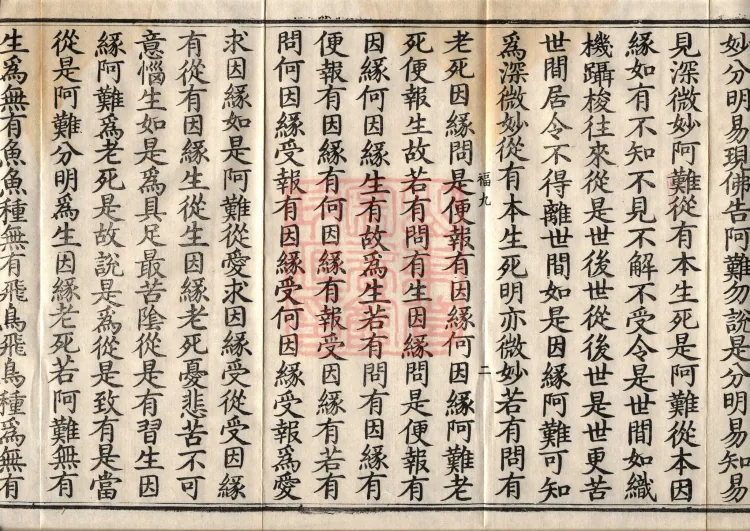 妙分明易現佛告阿難勿說是分明易知易
見深微妙阿難從有本生死是阿難從本因
緣如有不知不見不解不受令是世間如織
機躡梭往來從是世後世從後世是世更苦
世間居令不得離世間如是因緣阿難可知
為深微妙從有本生死明亦微妙若有問有
福九
二
老死因緣問是便報有因緣何因緣阿難老
死便報生故若有問有生因緣問是便報有
因緣何因緣生有故為生若有問有因緣有
便報有因緣有何因緣有報受因緣有若有
問何因緣受報有因緣受何因緣受報為愛
求因緣如是阿難從愛求因緣受從受因緣
有從有因緣生從生因緣老死憂悲苦不可
意惱生如是為具足最苦陰從是有習生因
緣阿難為老死是故說是為從是致有是當
從是阿難分明為生因緣老死若阿難無有
生為無有魚魚種無有飛鳥飛鳥種為無有